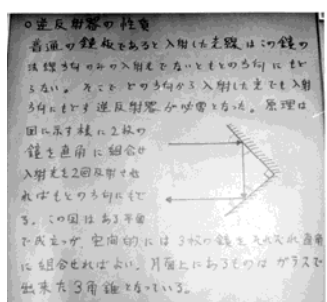 ○逆反射器の性質
普通の鏡板であると入射した光線はこの鏡の
法線方向のみの入射光でないともとの方向にもど
らない。そこでどの方向から入射した光でも入射
方向にもどす逆反射器が必要となった。原理は
図に示す様に2枚の
鏡を直角に組合せ
入射光を2回反射させ
ればもとの方向にもど
る。この図はある平面
で成立つが、空間的には3枚の鏡をそれぞれ直角
に組合せればよい。月面上にあるものはガラスで
出来た3角錐となっている。